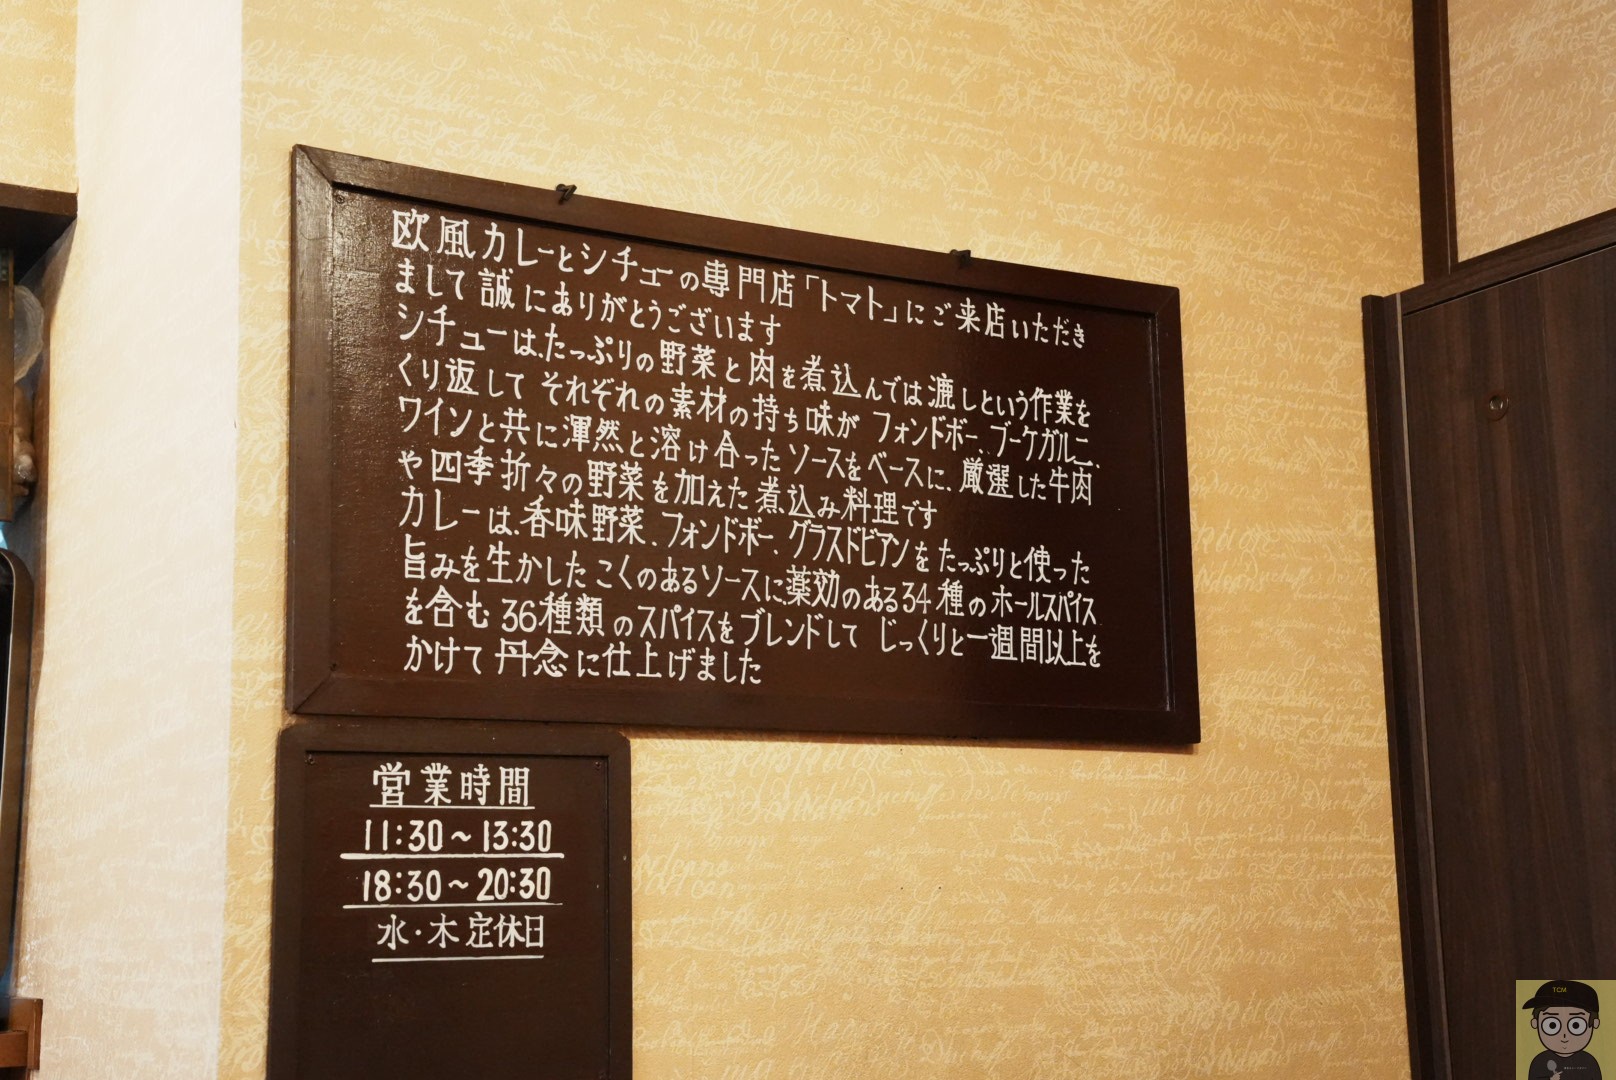 欧風カレーとシチューの専門店「トマト」にご来店いただき
まして誠にありがとうございます
シチューは、たっぷりの野菜と肉を煮込んでは漉しという作業を
くり返して それぞれの素材の持ち味が フォンドボー、ブーケガルニ、
ワインと共に渾然と溶け合ったソースをベースに、厳選した牛肉
や四季折々の野菜を加えた煮込み料理です
カレーは、香味野菜、フォンドボー、グラスドビアンをたっぷりと使った
旨みを生かしたこくのあるソースに薬効のある34種のホールスパイス
を含む36種類のスパイスをブレンドして じっくりと一週間以上を
かけて丹念に仕上げました
営業時間
11:30～13:30
18:30～20:30
水・木定休日
TCM